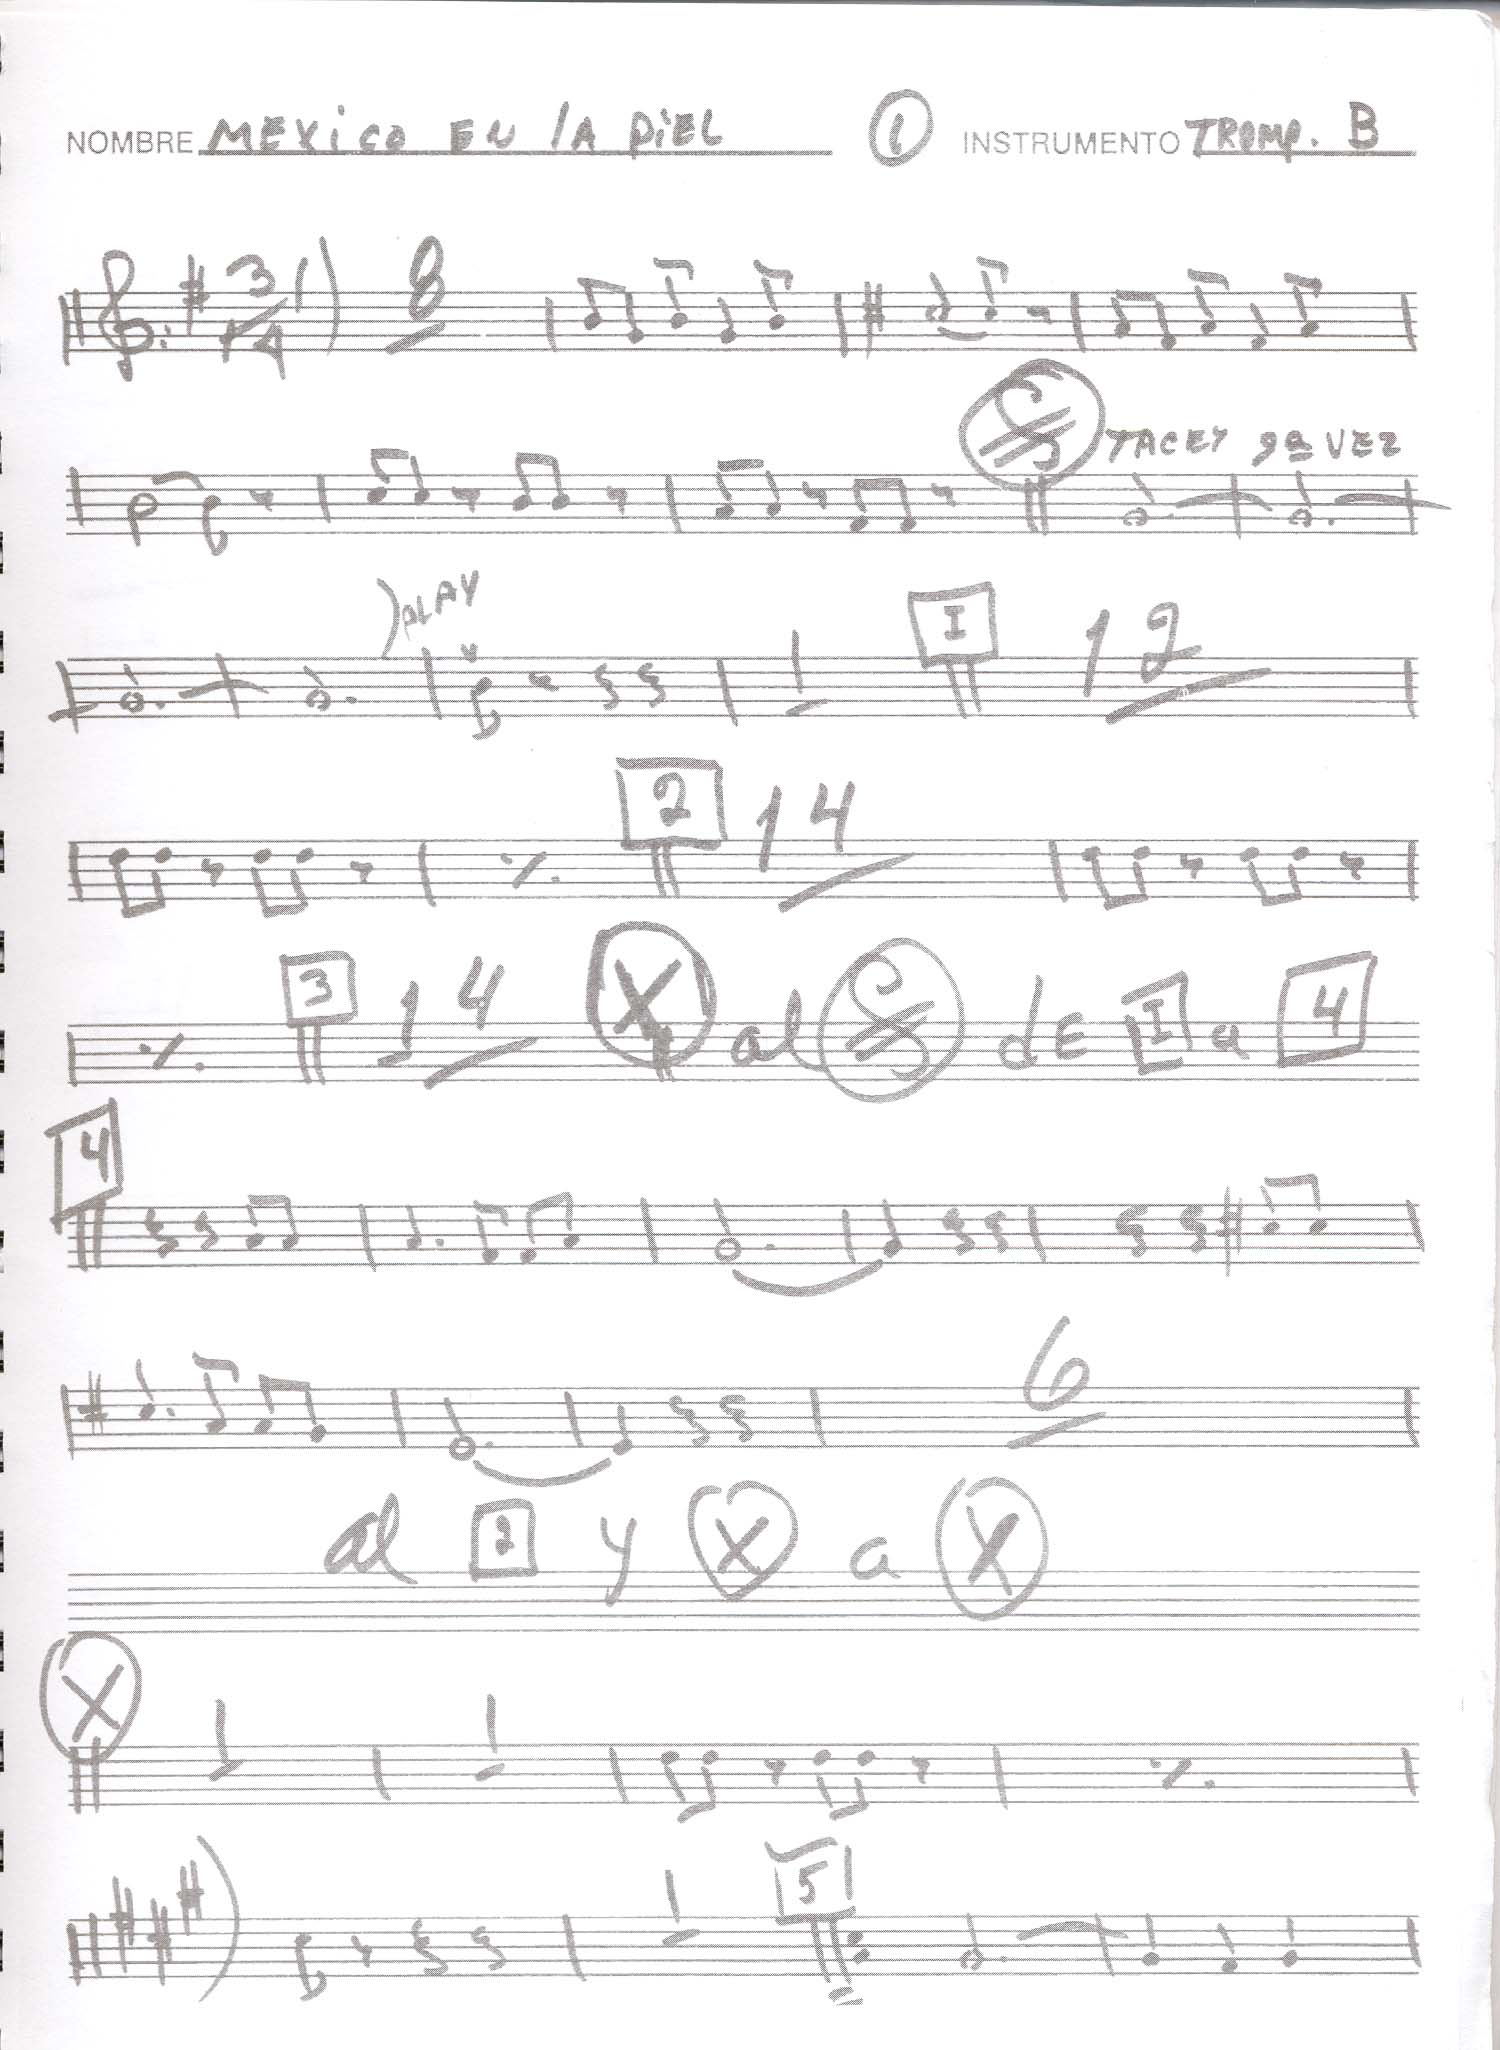 NOMBRE MEXICO EN LA PIEL 1 INSTRUMENTO TROMP. B
3/4 8
TACET 2ª VEZ
PLAY
1 I 12
2 14
3 14 X al de I a 4
4
6
al 2 y X a X
X 1 1
1 5